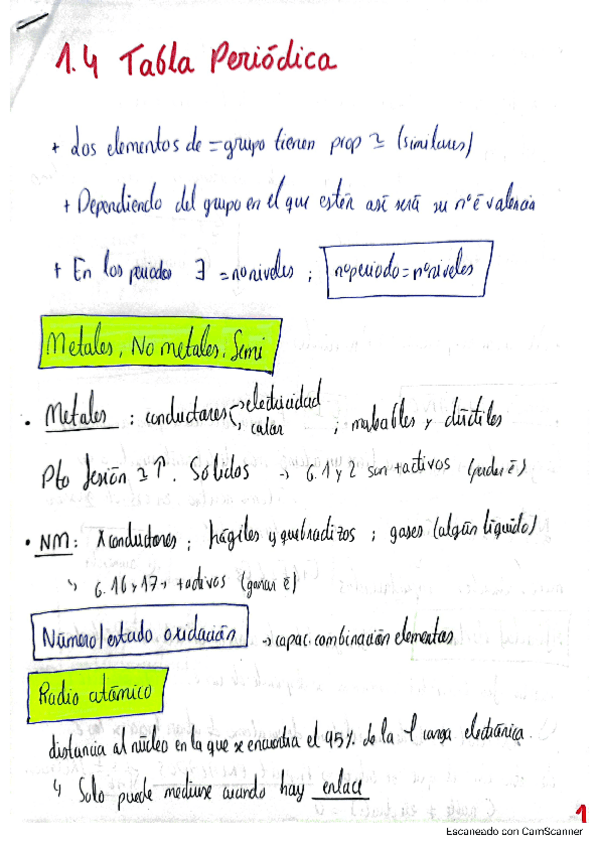 1.4 Tabla Periódica
+ Los elementos de = grupo tienen prop ≃ (similares)
+ Dependiendo del grupo en el que estén así será su nº ē valencia
+ En los periodos ∃ = no niveles ; nº periodo = nº niveles
Metales, No metales, Semi
• Metales : conductores electricidad
calor ; maleables y dúctiles
Pto fusión ≃ ↑. Sólidos → G. 1 y 2 son + activos (perder ē)
• NM: X conductores ; frágiles y quebradizos ; gases (algún líquido)
↳ G. 16 y 17 → + activos (ganar ē)
Número/estado oxidación → capac. combinación elementos
Radio atómico
distancia al núcleo en la que se encuentra el 95% de la carga electrónica.
↳ Solo puede medirse cuando hay enlace
1
Escaneado con CamScanner